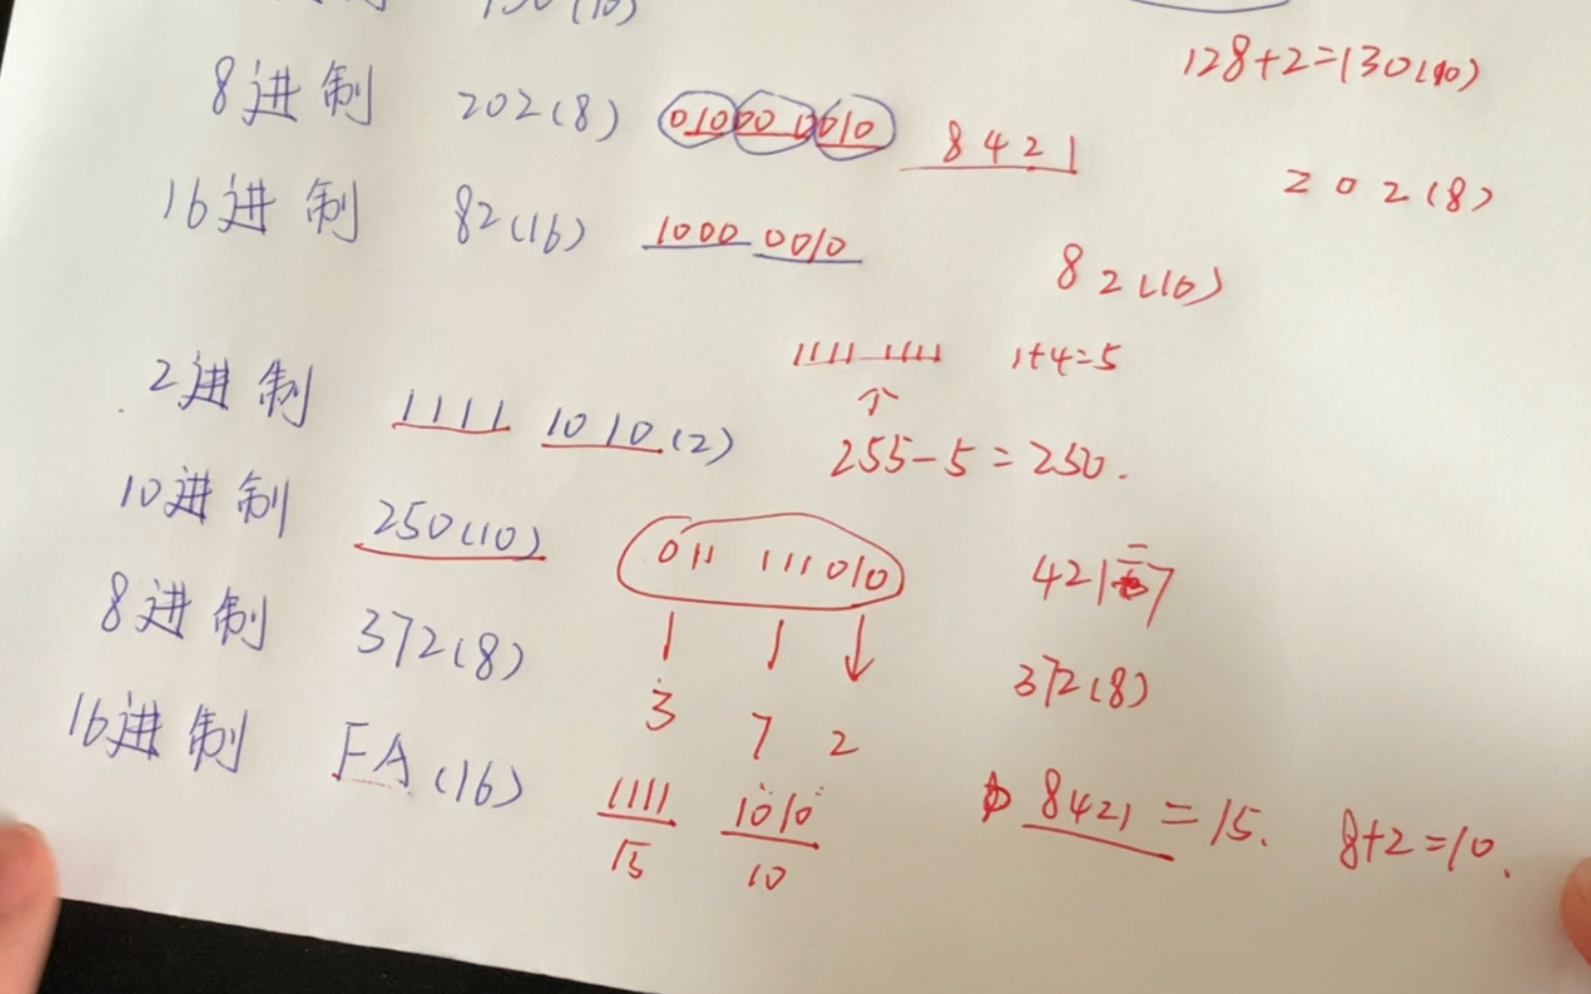 130(10)
128+2=130(10)
8进制 202(8) 010 000 010 8421
202(8)
16进制 82(16) 1000 0010
82(16)
1111 1111 1+4=5
2进制 1111 1010(2)
↑
255-5=250.
10进制 250(10)
011 111 010 421=7
8进制 372(8)
3 7 2 372(8)
16进制 FA(16)
1111 1010 8421=15. 8+2=10.
15 10